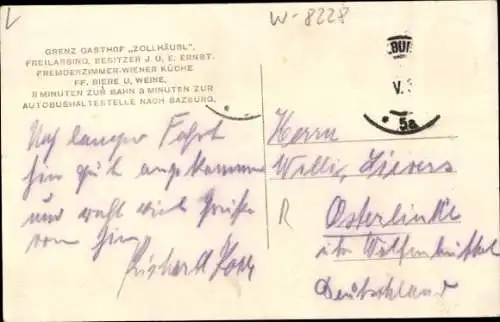 W-8228
GRENZ GASTHOF „ZOLLHÄUSL",
FREILASSING, BESITZER J. U. E. ERNST.
FREMDENZIMMER-WIENER KÜCHE
FF. BIERE U. WEINE,
8 MINUTEN ZUR BAHN 3 MINUTEN ZUR
AUTOBUSHALTESTELLE NACH SAZBURG.
BUR
V.
5a
Nach langer Fahrt
hin gut angekommen
und wohl viele Grüße
von hier
Richard
Herrn
Willi Sievers
R
Osterlinde
Wolfenbüttel
Deutschland